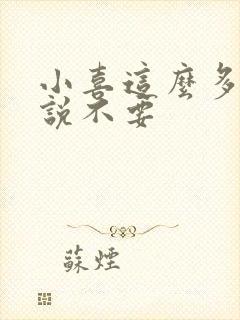 小喜這麼多
說不要
蘇煙